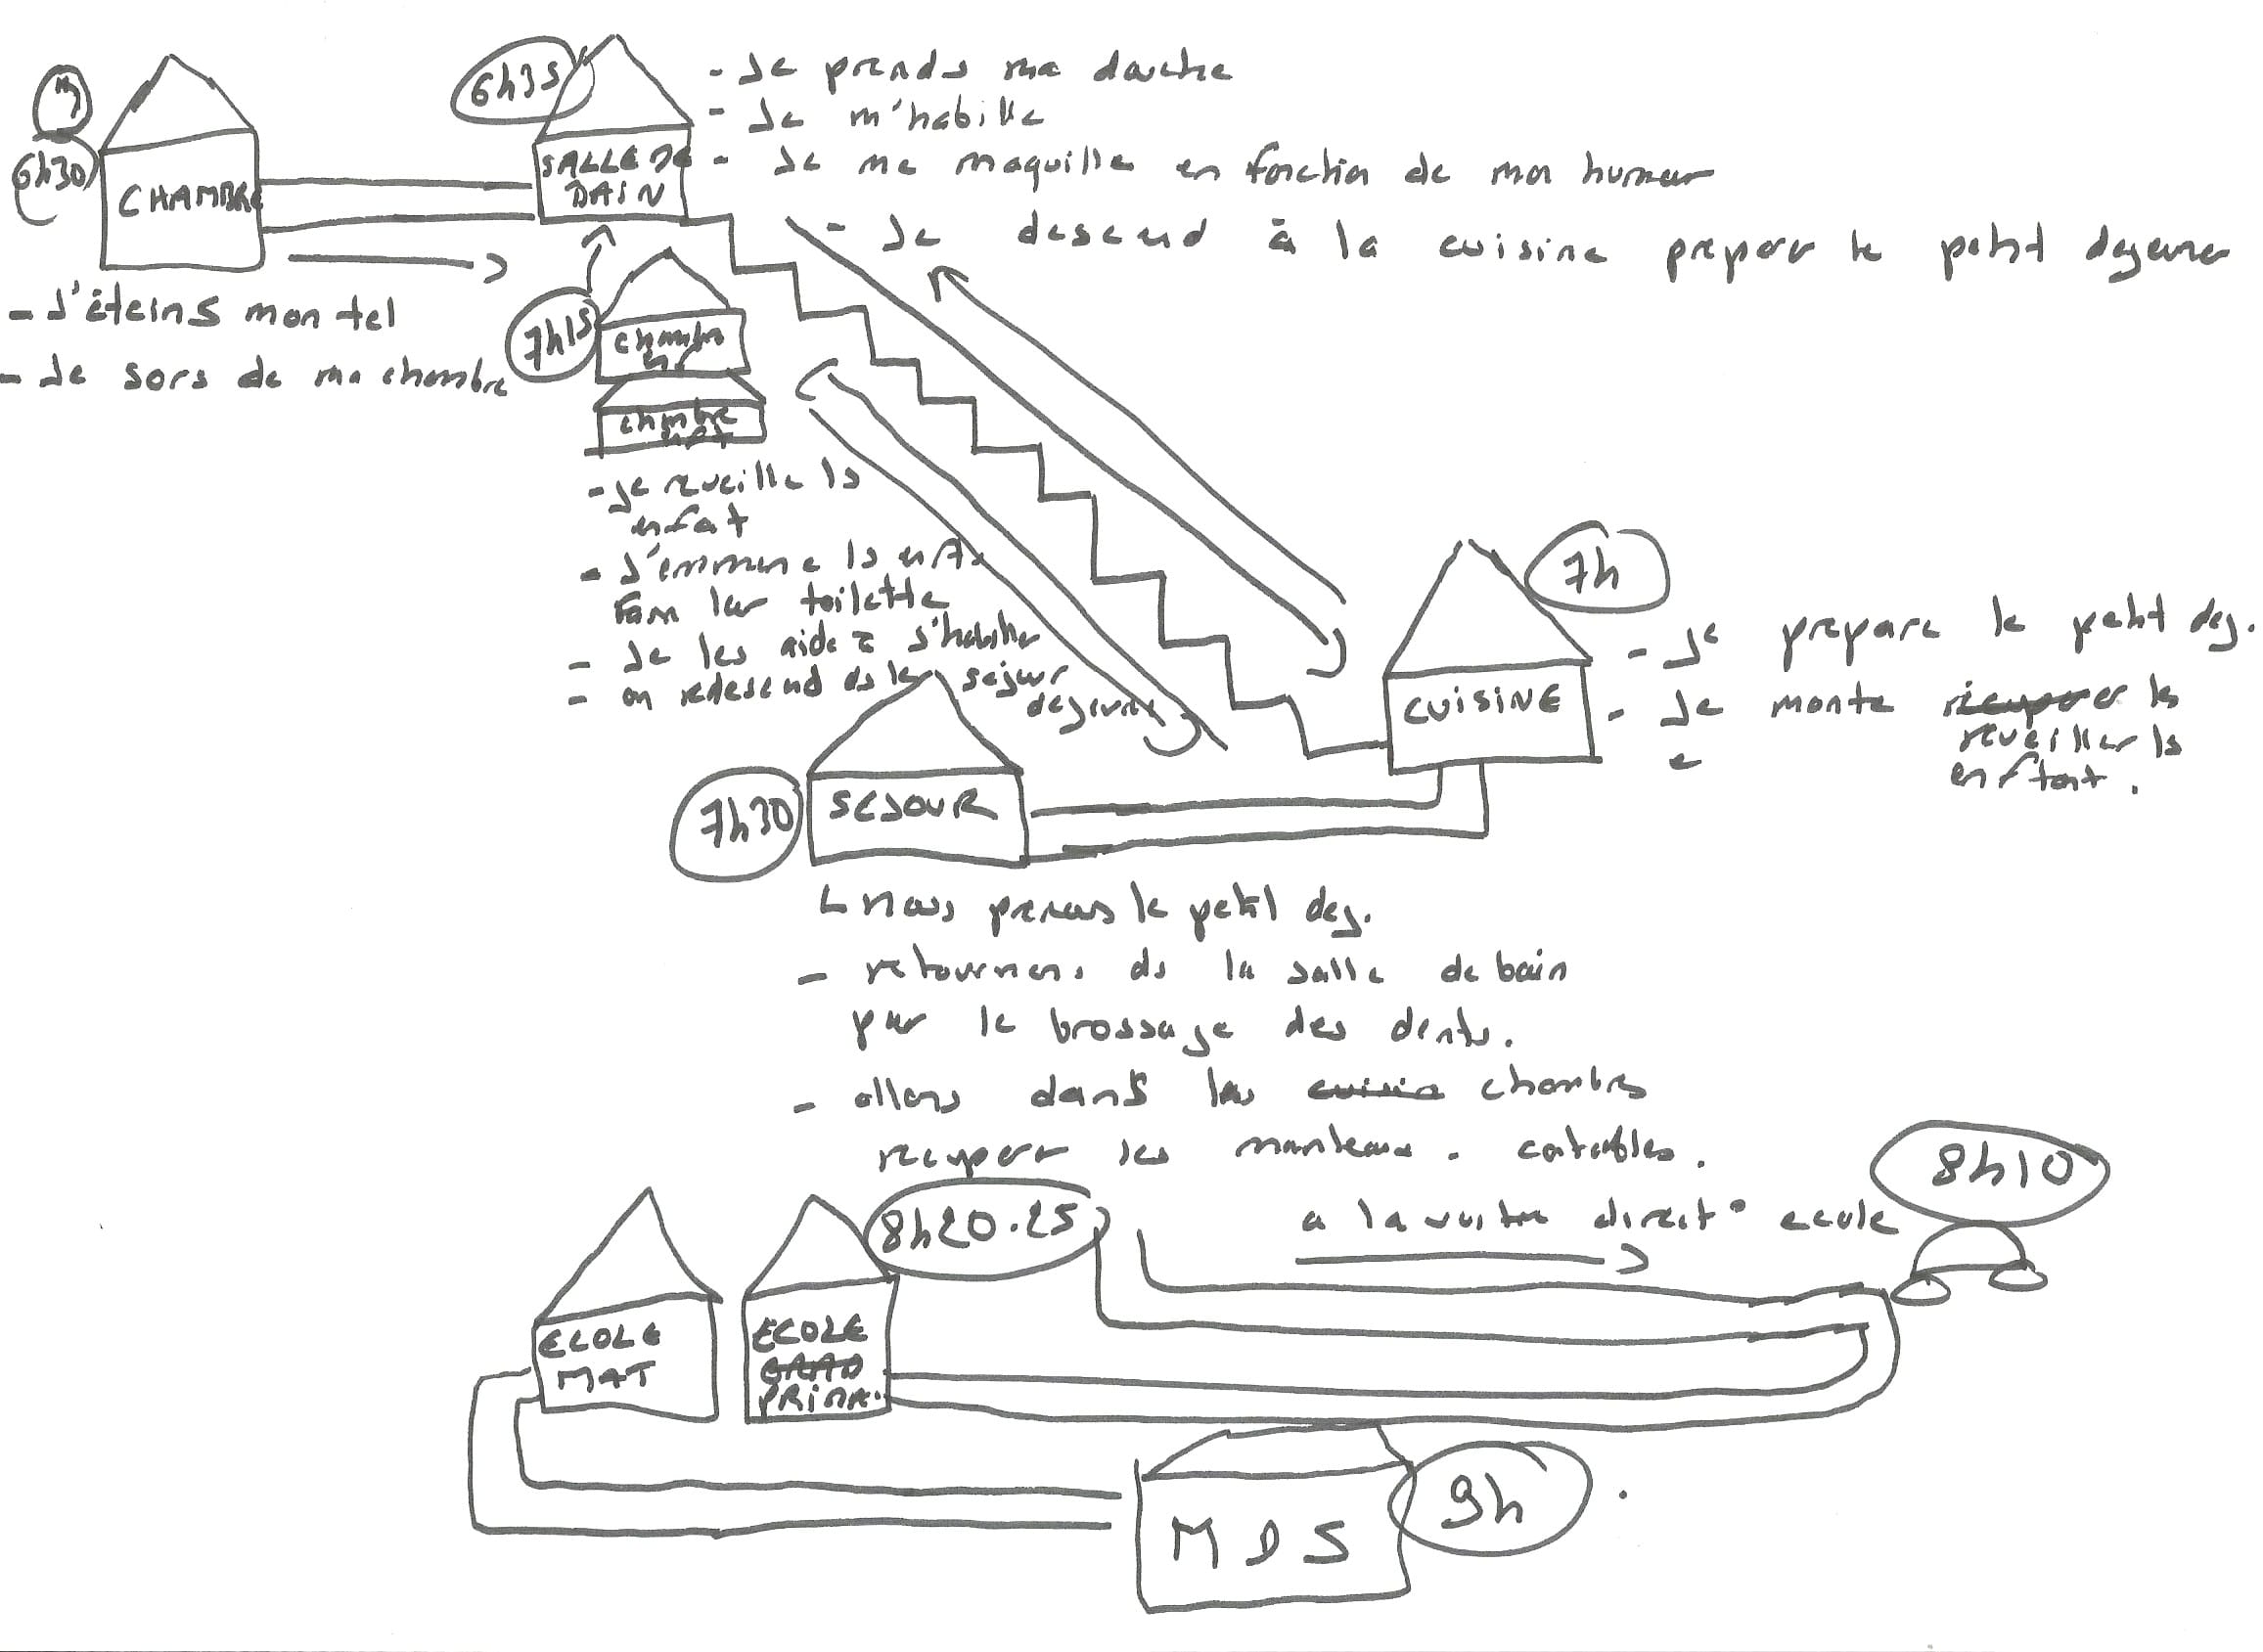 6h30
CHAMBRE
- J'éteins mon tel
- Je sors de ma chambre
6h35
SALLE DE
BAIN
- Je prends ma douche
- Je m'habille
- Je me maquille en fonction de mon humeur
- Je descend à la cuisine preparer le petit dejeuner
7h15
chambre
chmbre
- je reveille ls
enfat
- J'emmene ls enfts
faire leur toilette
- Je les aide à s'habiller
- on redescend ds le sejour
dejeuner
7h
CUISINE
- Je prepare le petit dej.
- Je monte recuperer ls
reveiller ls
enftant.
7h30
SEJOUR
Nous prenons le petit dej.
- retournons ds la salle de bain
pour le brossage des dents.
- allons dans les cuisine chambres
recuperer les manteaux. cartables.
8h10
a la voiture direct° ecole
8h20.25
ECOLE
MAT
ECOLE
GRAND
PRIMR.
MDS
9h